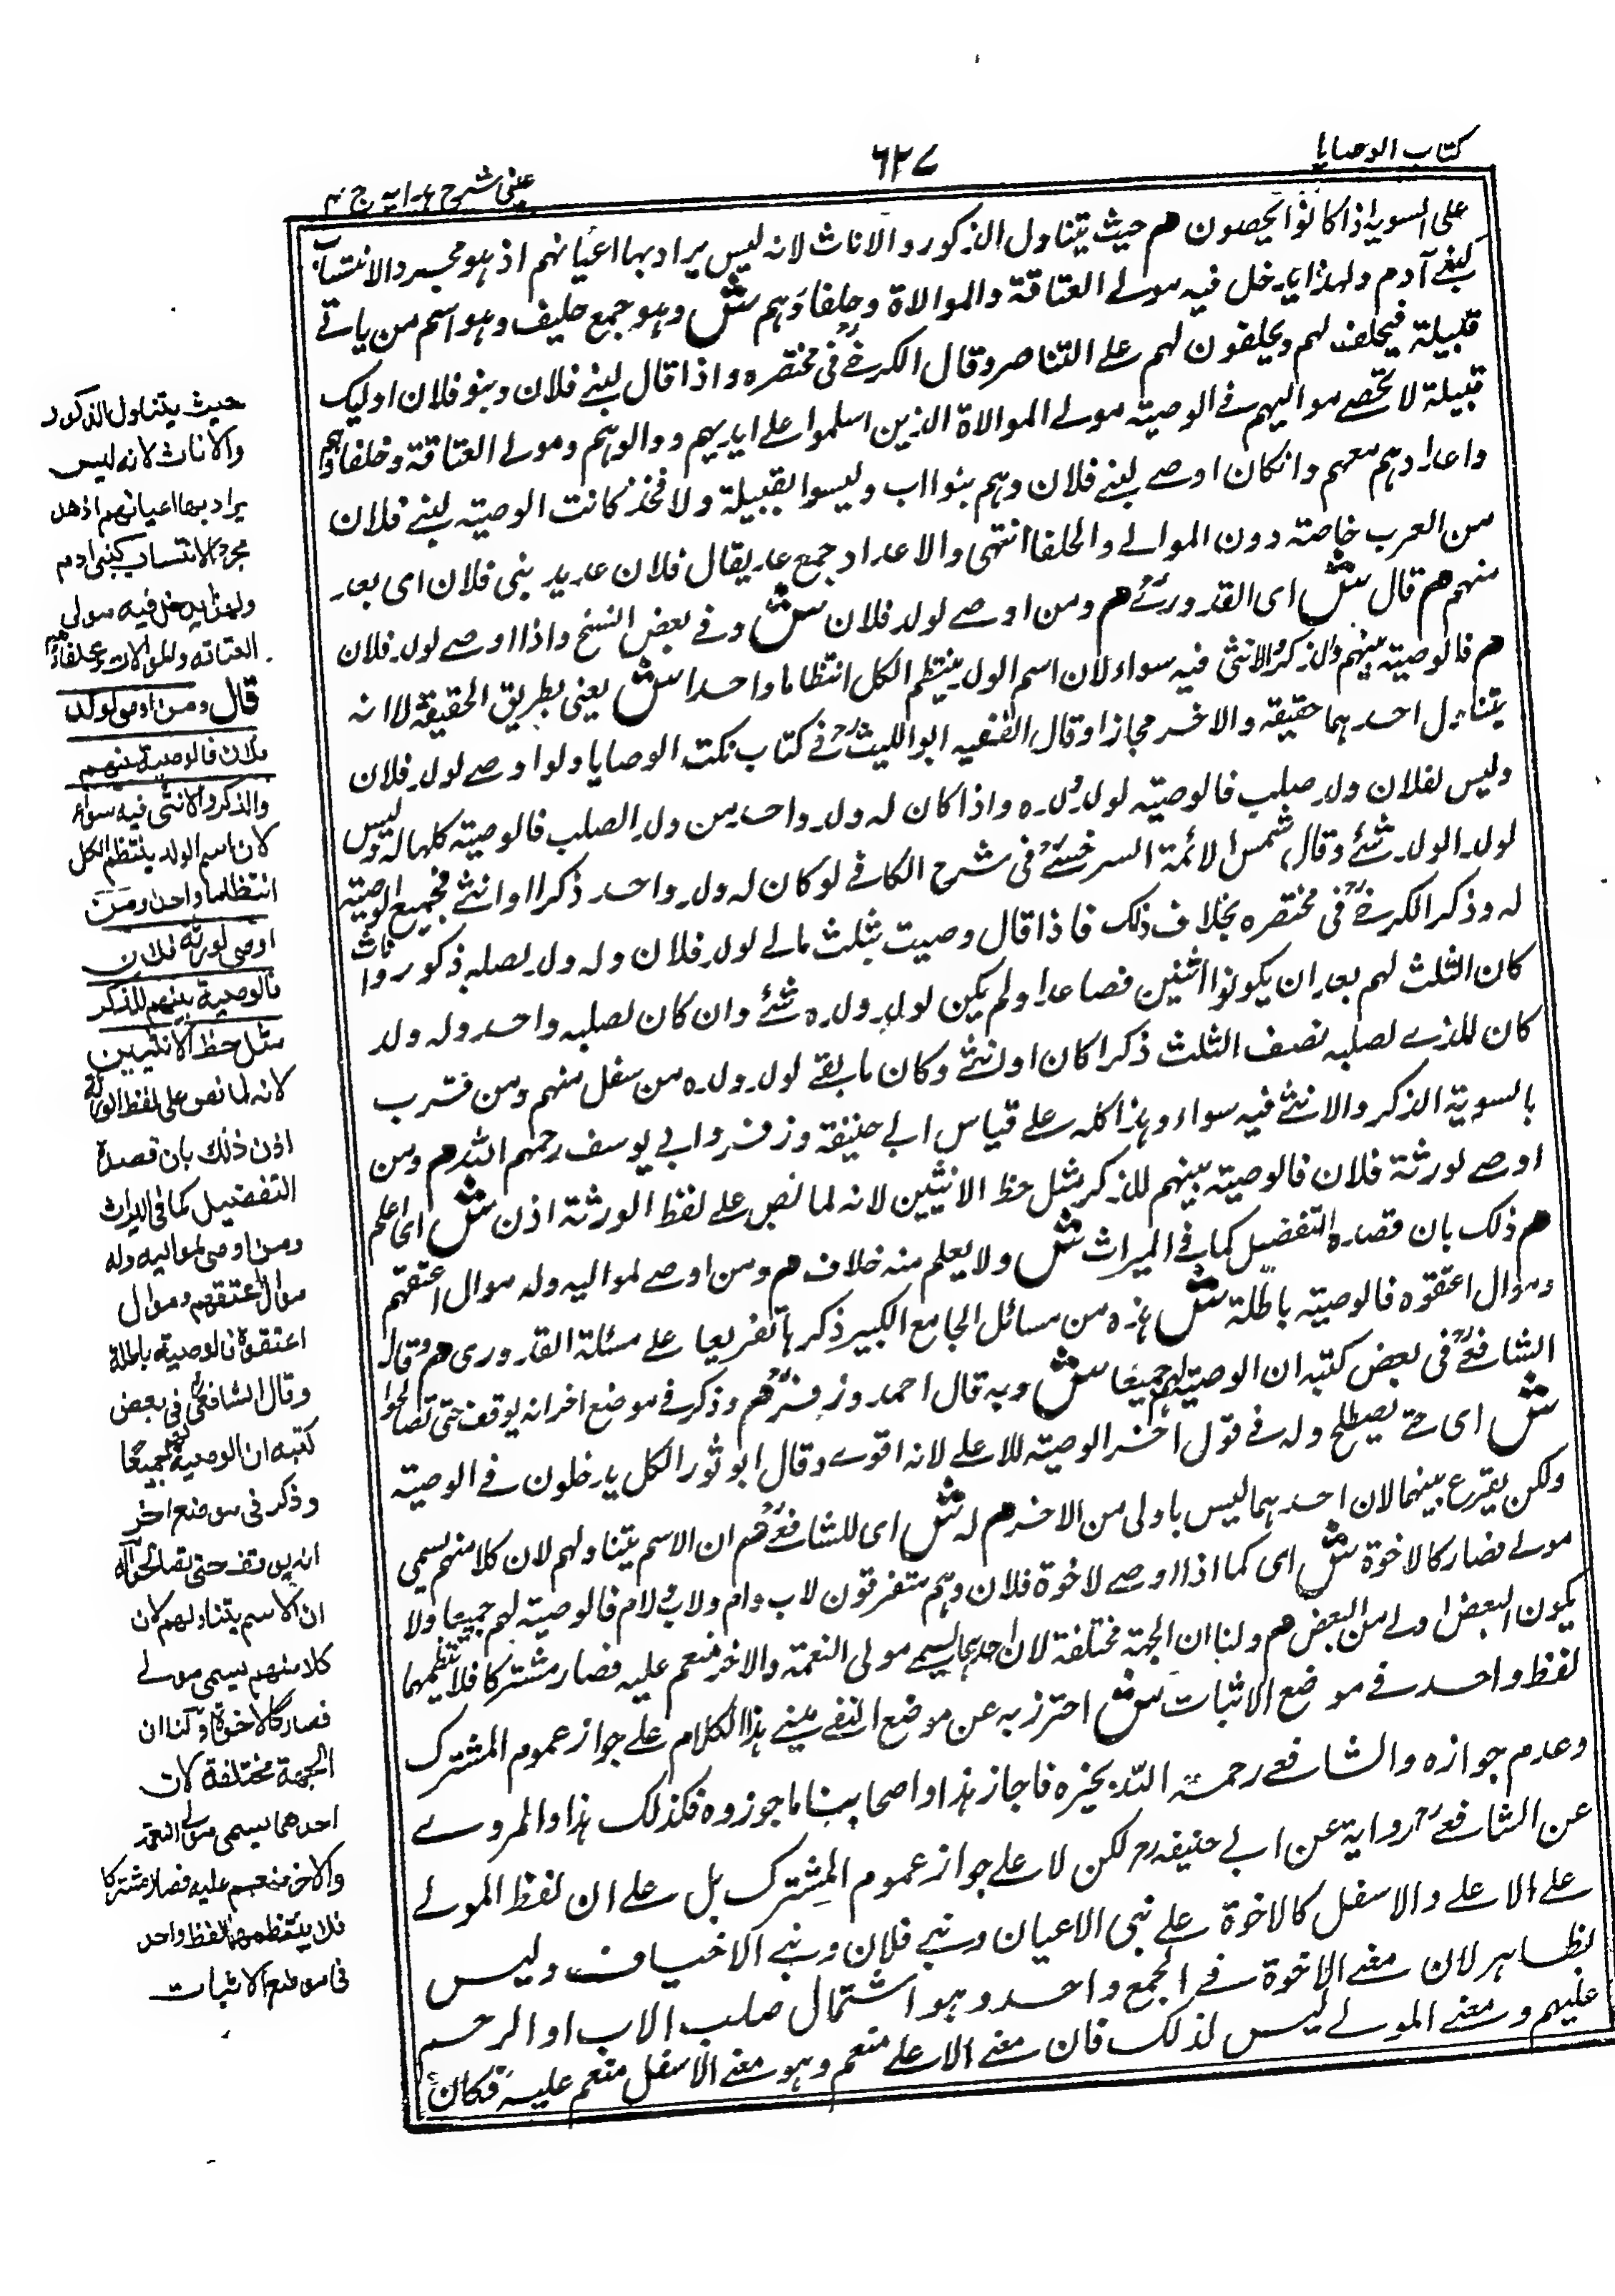 كتاب الوصايا
٦٢٧
عینی شرح هدایہ ج ٤
على السوية اذا كانوا يحصون هم حيث يتناول الذكور والاناث لانه ليس يراد بها اعيانهم اذ هو مجرد الانتساب
كبنى آدم ولهذا يدخل فيه مولى العتاقة والموالاة وحلفاؤهم ش وهو جمع حليف وهو اسم من ياتى
قبيلة فيحلف لهم ويحلفون لهم على التناصر وقال الكرخىؒ فى مختصره واذا قال لبنى فلان وبنو فلان اوليك
قبيلة لا تحصى مواليهم فى الوصية مولى الموالاة الذين اسلموا على ايديهم ووالوهم ومولى العتاقة وحلفاؤهم
واعدادهم معهم وانكان اوصى لبنى فلان وهم بنو اب وليسوا بقبيلة ولا فخذ كانت الوصية لبنى فلان
من العرب خاصة دون الموالى والحلفا انتهى والاعداد جمع عد يقال فلان عديد بنى فلان اى يعد
منهم هم قال ش اى القدورىؒ هم ومن اوصى لولد فلان ش وفى بعض النسخ واذا اوصى لولد فلان
هم فالوصية بينهم والذكر والانثى فيه سواء لان اسم الولد ينتظم الكل انتظاما واحدا ش يعنى بطريق الحقيقة لا انه
يتناول احدهما حقيقة والاخر مجازا وقال الفقيه ابوالليثؒ فى كتاب نكت الوصايا ولو اوصى لولد فلان
وليس لفلان ولد صلب فالوصية لولد ولده واذا كان له ولد واحد من ولد الصلب فالوصية كلها له وليس
لولد الولد شئ وقال شمس الائمة السرخسىؒ فى شرح الكافى لو كان له ولد واحد ذكرا او انثى فجميع الوصية
له وذكر الكرخىؒ فى مختصره بخلاف ذلك فاذا قال وصيت بثلث مالى لولد فلان وله ولد لصلبه ذكور واناث
كان الثلث لهم بعد ان يكونوا اثنين فصاعدا ولم يكن لولد ولده شئ وان كان لصلبه واحد وله ولد
كان للذى لصلبه نصف الثلث ذكرا كان او انثى وكان ما بقى لولد ولده من سفل منهم ومن قرب
بالسوية الذكر والانثى فيه سواء وهذا كله على قياس ابى حنيفة وزفر وابى يوسف رحمهم الله هم ومن
اوصى لورثة فلان فالوصية بينهم للذكر مثل حظ الانثيين لانه لما نص على لفظ الورثة اذن ش اى اعلم
هم ذلك بان قصده التفضيل كما فى الميراث ش ولا يعلم منه خلاف هم ومن اوصى لمواليه وله موال اعتقهم
وموال اعتقوه فالوصية باطلة ش هذه من مسائل الجامع الكبير ذكرها تفريعا على مسئلة القدورى هم وقال
الشافعىؒ فى بعض كتبه ان الوصية لهم جميعا ش وبه قال احمد وزفرؒ هم وذكر فى موضع اخر انه يوقف حتى تصالحوا
ش اى حتى يصطلح وله فى قول اخر الوصية للاعلى لانه اقوى وقال ابو ثور الكل يدخلون فى الوصية
ولكن يقرع بينهما لان احدهما ليس باولى من الاخر هم له ش اى للشافعىؒ هم ان الاسم يتناولهم لان كلا منهم يسمى
مولى فصار كالاخوة ش اى كما اذا اوصى لاخوة فلان وهم متفرقون لاب وام ولاب ولام فالوصية لهم جميعا ولا
يكون البعض اولى من البعض هم ولنا ان الجهة مختلفة لان احدهما يسمى مولى النعمة والاخر منعم عليه فصار مشتركا فلا ينتظمهما
لفظ واحد فى موضع الاثبات ش احترز به عن موضع النفى يبنى هذا الكلام على جواز عموم المشترك
وعدم جوازه والشافعى رحمة الله يخيره فاجاز هذا واصحابنا ما جوزوه فكذلك هذا والمروى
عن الشافعىؒ رواية عن ابى حنيفةؒ لكن لا على جواز عموم المشترك بل على ان لفظ المولى
على الاعلى والاسفل كالاخوة على بنى الاعيان وبنى فلان وبنى الاخياف وليس
بظاهر لان معنى الاخوة فى الجمع واحد وهو اشتمال صلب الاب او الرحم
عليهم ومعنى المولى ليس لذلك فان معنى الاعلى منعم وهو معنى الاسفل منعم عليه فكان
حيث يتناول الذكور
والاناث لانه ليس
يراد بها اعيانهم اذ هو
مجرد الانتساب كبنى ادم
ولهذا يدخل فيه مولى
العتاقة والموالات وحلفاؤهم
قال ومن اوصى لولد
فلان فالوصية بينهم
والذكر والانثى فيه سواء
لان اسم الولد ينتظم الكل
انتظاما واحدا ومن
اوصى لورثة فلان
فالوصية بينهم للذكر
مثل حظ الانثيين
لانه لما نص على لفظ الورثة
اذن ذلك بان قصده
التفضيل كما فى الميراث
ومن اوصى لمواليه وله
موال اعتقهم وموال
اعتقوه فالوصية باطلة
وقال الشافعىؒ فى بعض
كتبه ان الوصية لهم جميعا
وذكر فى موضع اخر
انه يوقف حتى يصالحوا له
ان الاسم يتناولهم لان
كلا منهم يسمى مولى
فصار كالاخوة ولنا ان
الجهة مختلفة لان
احدهما يسمى مولى النعمة
والاخر منعم عليه فصار مشتركا
فلا ينتظمهما لفظ واحد
فى موضع الاثبات